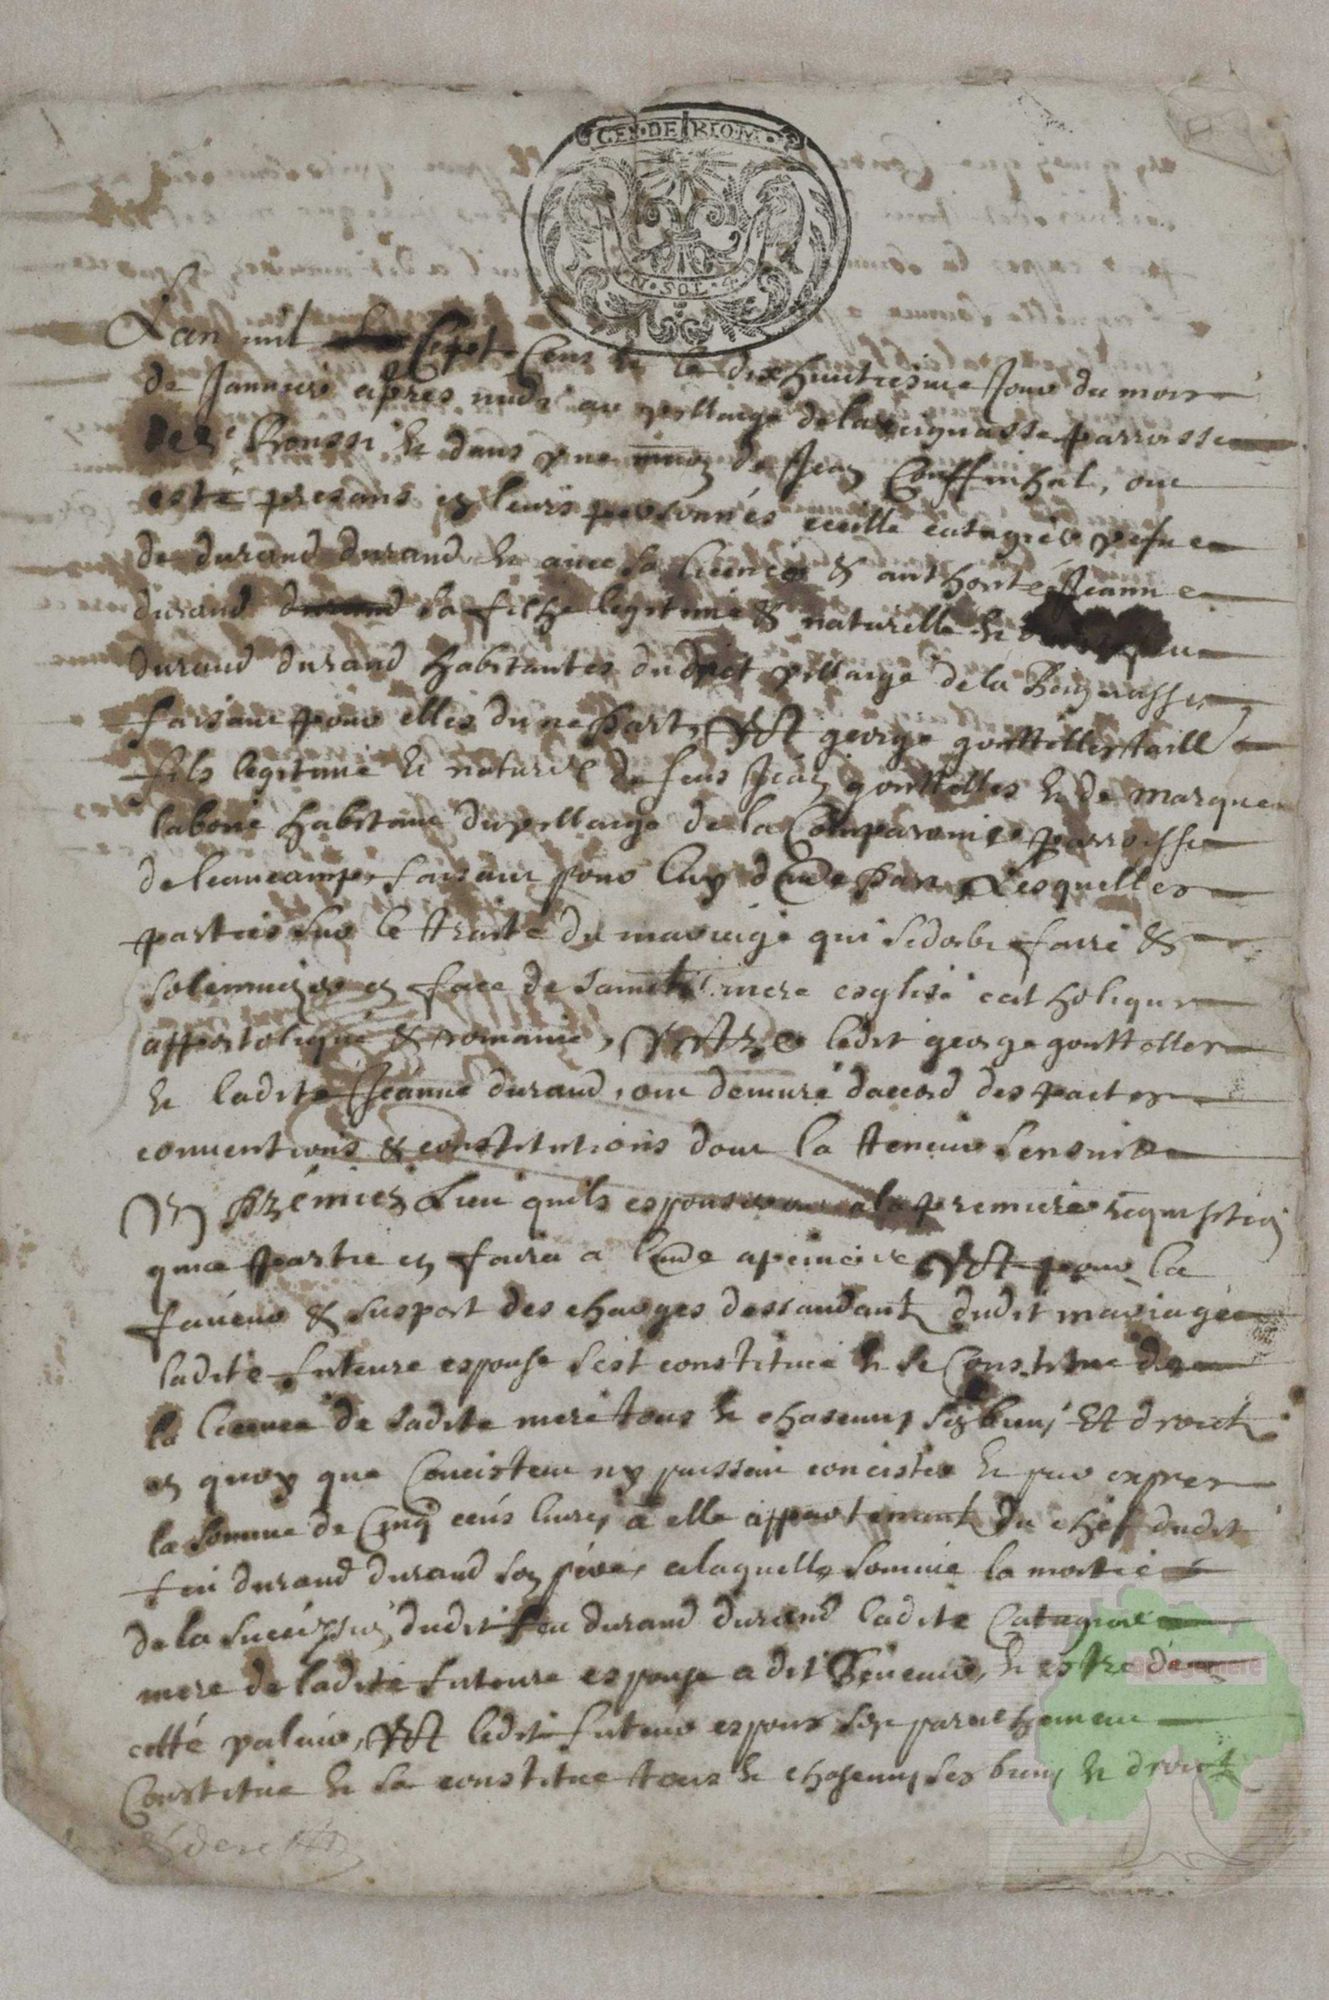 GEN·DE·RIOM
N·SOL·4·D
Lan mil Sept Cens & le dixhuictiesme Jour du mois
de Janvuier apres midi au villaige de la parroisse
de & dans une de Jean Couffinhal, ont
esté presans en leurs personnes vefue
de durand durand & avec sa licence & authorité Jeanne
durand sa filhe legitime & naturelle & feu
durand durand habitantes dudict villaige de la
faisant pour elles dune part, Et george gouttelles
fils legitime & naturel de feus Jean gouttelles & de marque
laborie habitant du villaige de la parroisse
de faisant pour luy dautre part, Lesquelles
parties sur le traite du mariage qui se doibt faire &
solemnizer en face de saincte mere esglise catholique
appostolique & romaine, Entre ledit george gouttelles
& ladite Jeanne durand, ont demuré daccord des pactes
conventions & constitutions dont la teneur sensuit
En premier Lieu quils espouseront a la premiere requisition
que partie en faira a lautre a peine Et pour la
faveur & suport des charges dessandant dudit mariage
ladite future espouse sest constituée & se Constitue de
la licence de sadite mere tous & chascuns ses biens Et droicts
en quoy que Concistent ny puissent concister & par expres
la somme de Cinq cens livres a elle appartenant du chef dudit
feu durand durand son pere, a laquelle somme la moitié
de la succession dudit feu durand durand ladite
mere de ladite future espouse a dit Revenir, & estre de
cette valeur, Et ledit futeur espoux sen pareilhement
Constitue & se constitue tous & chascuns ses biens & droicts